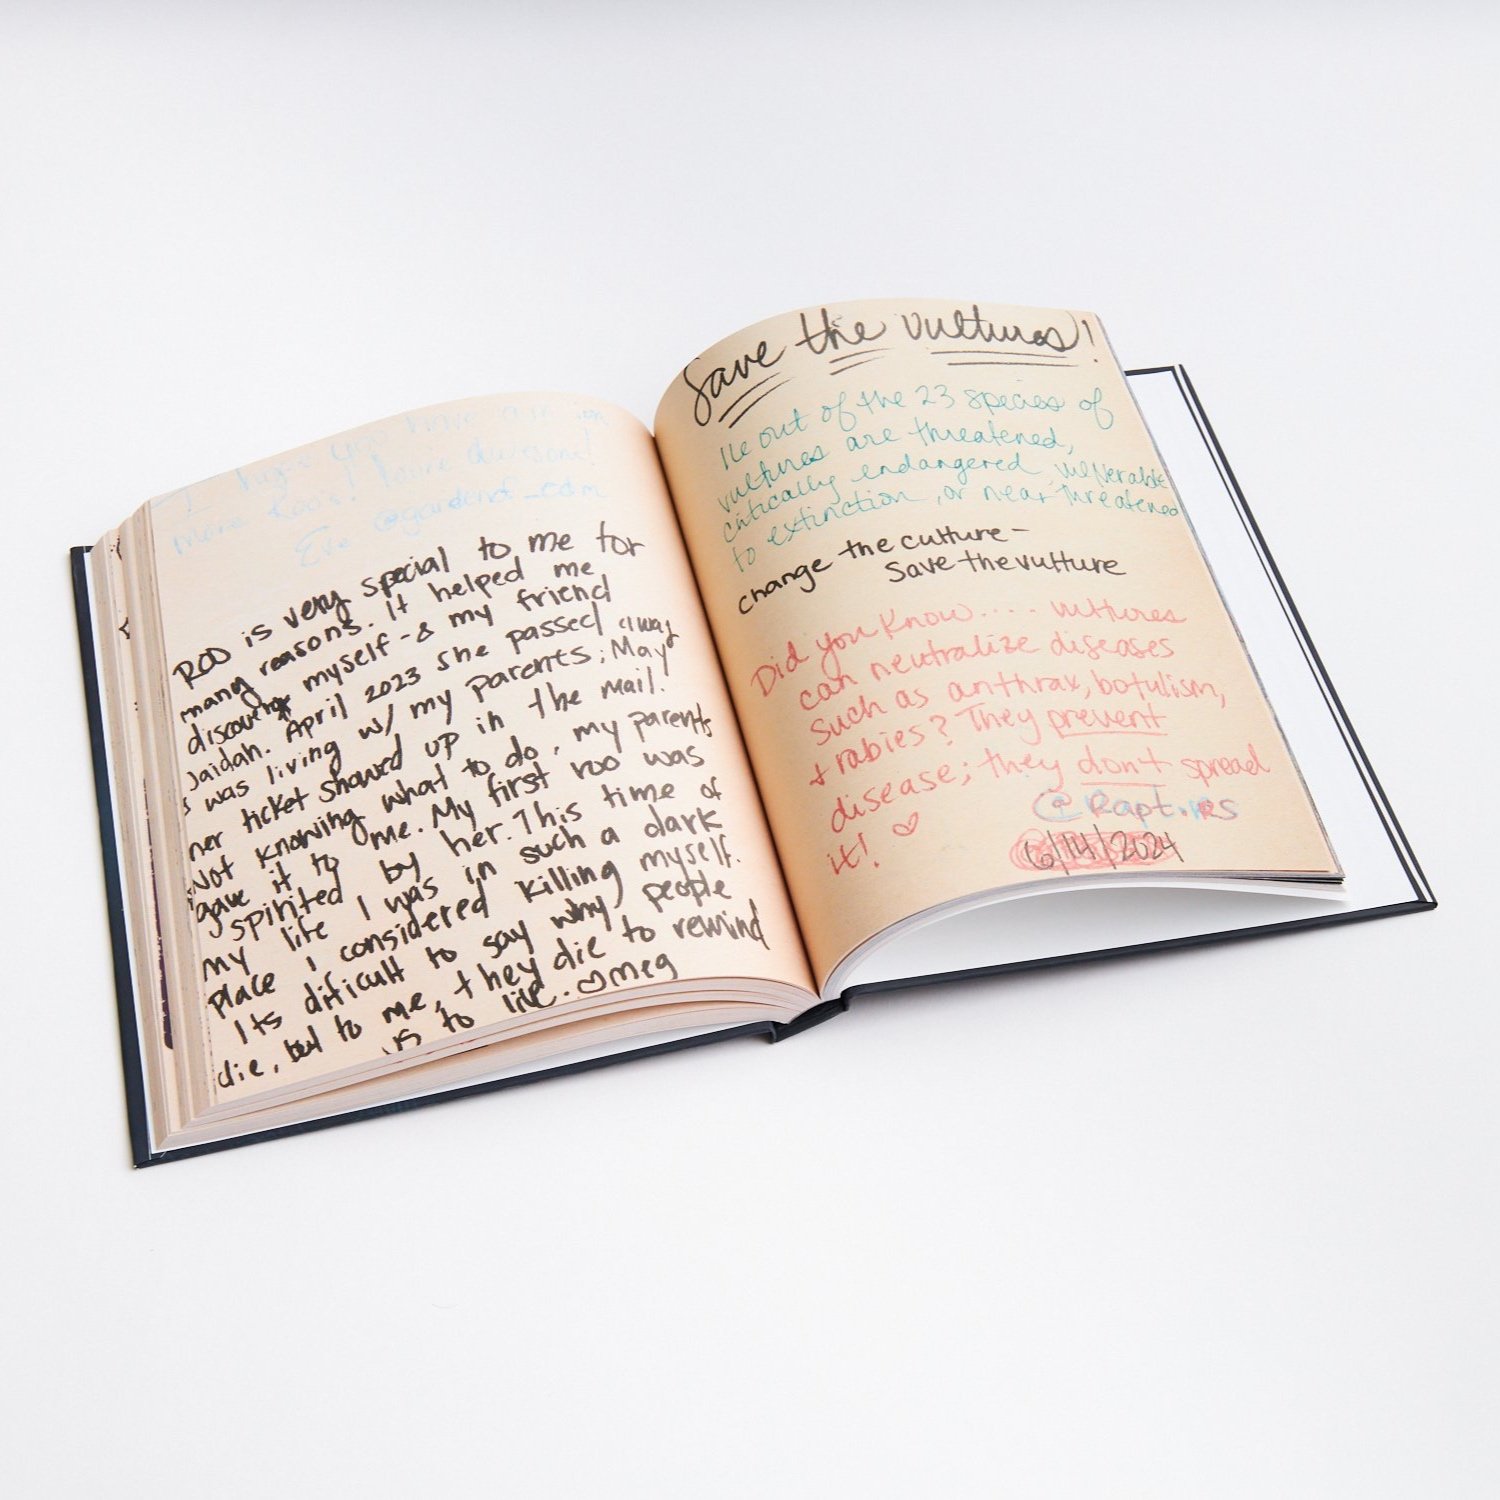 I hope you have
more Roos! You're awesome!
Eve @gardenof_edm
ROO is very special to me for
many reasons. It helped me
discover myself - & my friend
Jaidah. April 2023 she passed away
I was living w/ my parents; May
her ticket showed up in the mail.
Not knowing what to do, my parents
gave it to me. My first roo was
spirited by her. This time of
my life I was in such a dark
place I considered killing myself.
Its dificult to say why people
die, but to me, they die to rewind
us to live. ♡ Meg
Save the vultures!
16 out of the 23 species of
vultures are threatened,
critically endangered, vulnerable
to extinction, or near threatened
change the culture -
Save the vulture
Did you know.... vultures
can neutralize diseases
such as anthrax, botulism,
+ rabies? They prevent
disease; they don't spread
it! ♡
6/14/2024